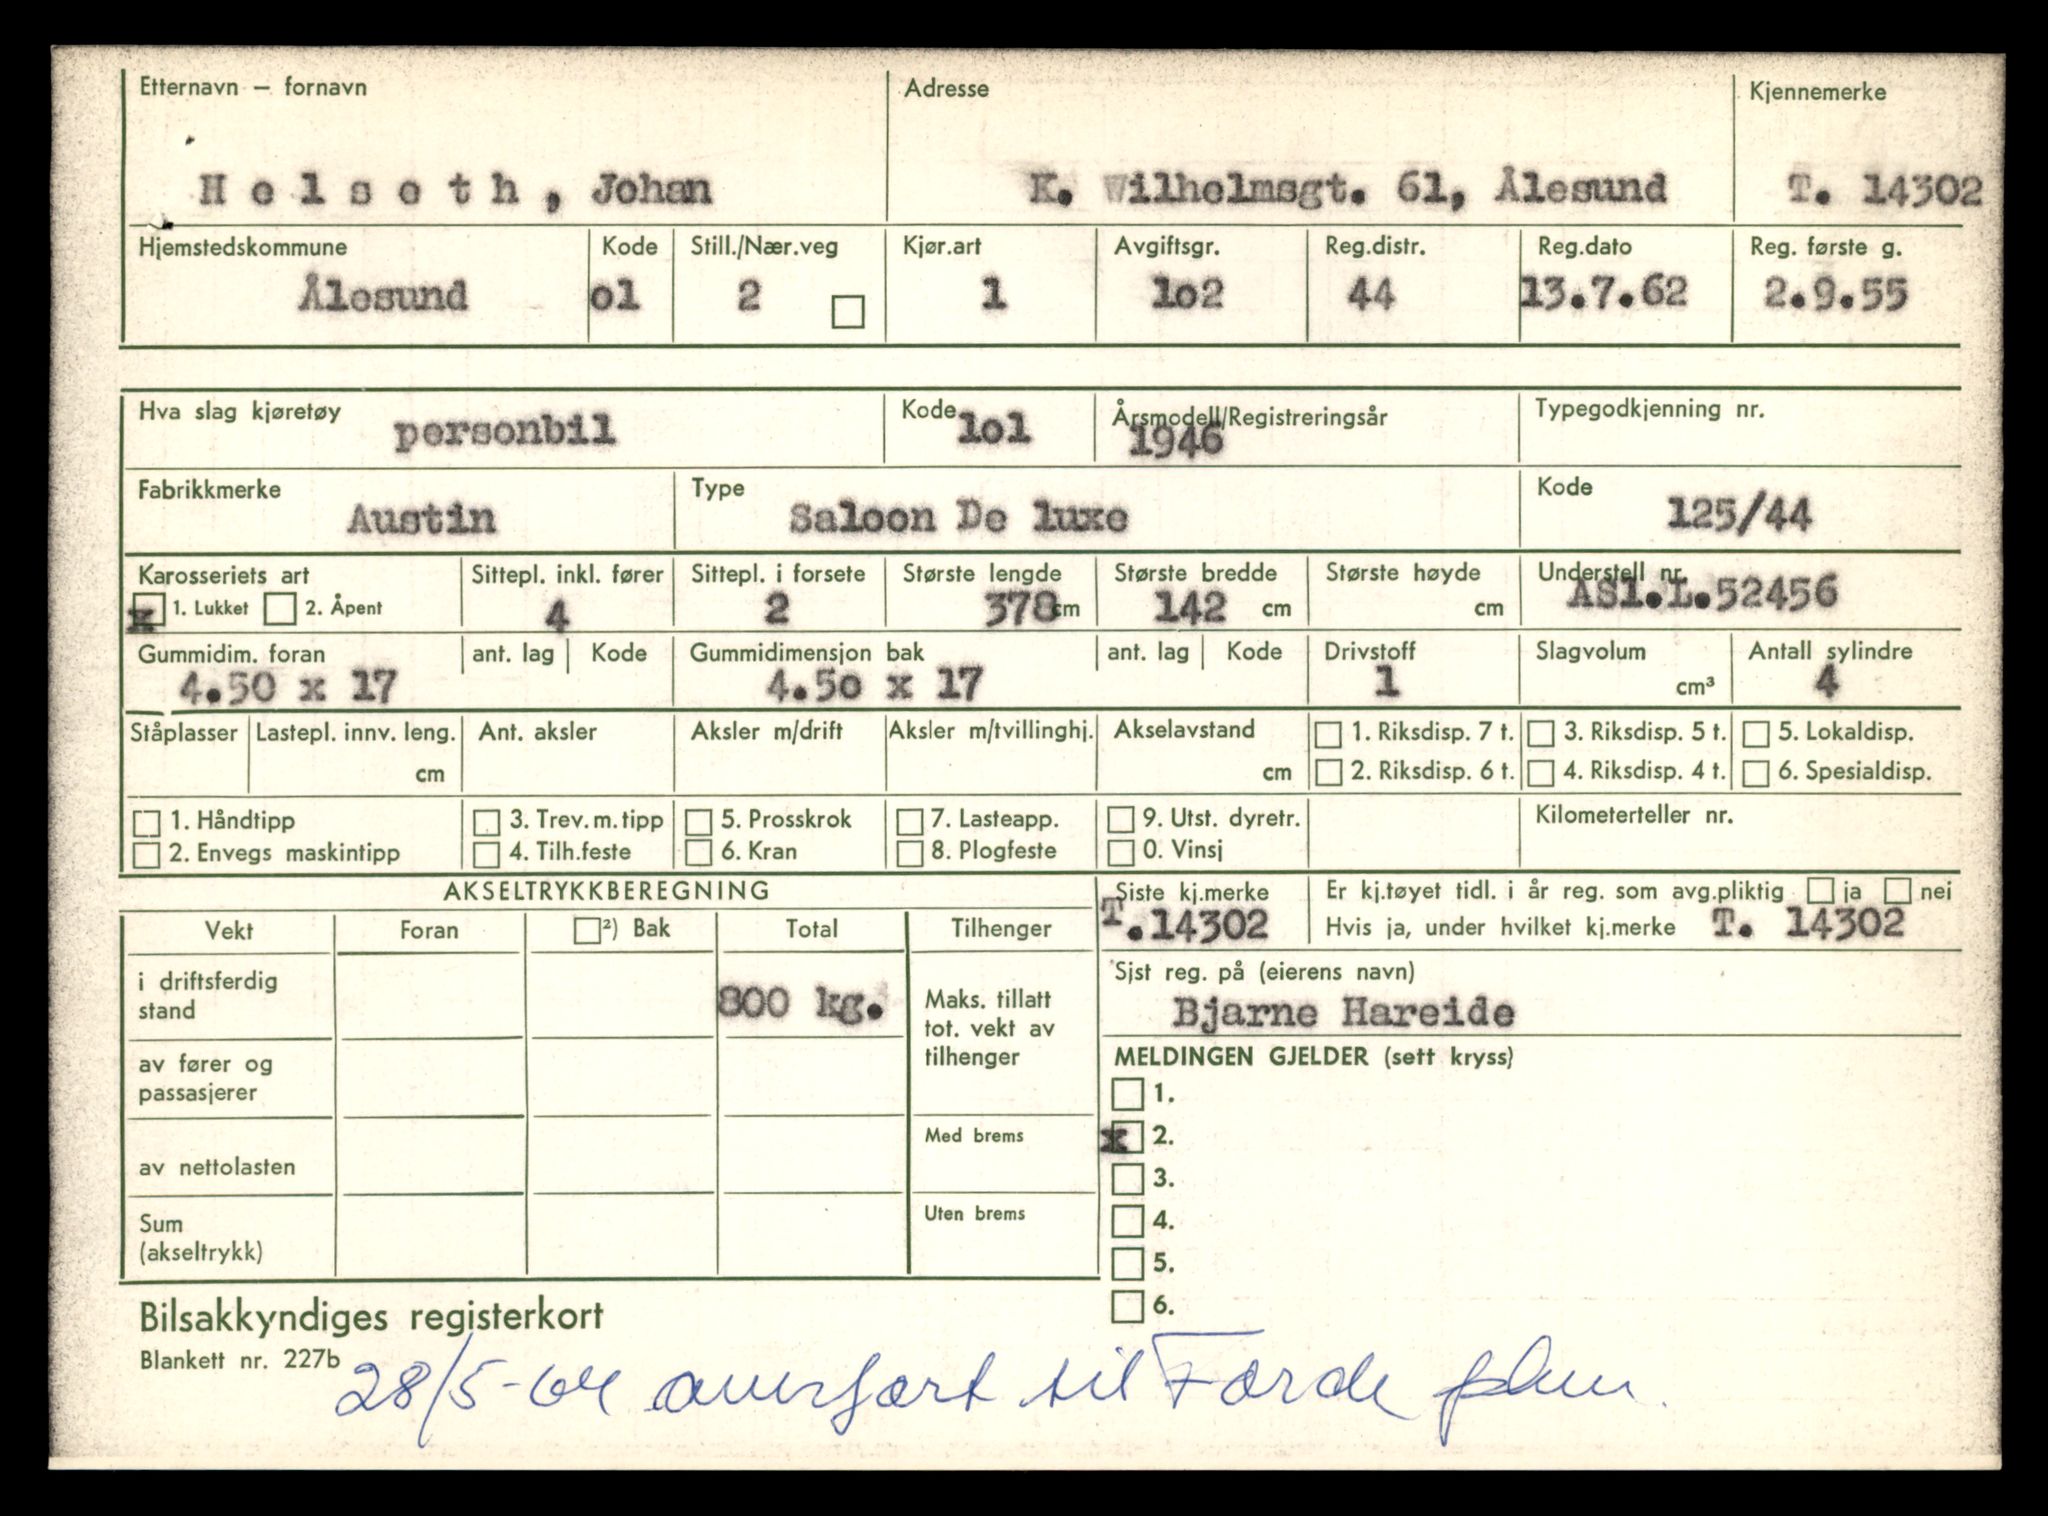 Etternavn – fornavn Adresse Kjennemerke
Helseth, Johan K. Wilhelmsgt. 61, Ålesund T. 14302
Hjemstedskommune Kode Still./Nær.veg Kjør.art Avgiftsgr. Reg.distr. Reg.dato Reg. første g.
Ålesund o1 2 1 1o2 44 13.7.62 2.9.55
Hva slag kjøretøy Kode Årsmodell/Registreringsår Typegodkjenning nr.
personbil 1o1 1946
Fabrikkmerke Type Kode
Austin Saloon De luxe 125/44
Karosseriets art Sittepl. inkl. fører Sittepl. i forsete Største lengde Største bredde Største høyde Understell nr.
x 1. Lukket 2. Åpent 4 2 378 cm 142 cm cm AS1.L.52456
Gummidim. foran ant. lag Kode Gummidimensjon bak ant. lag Kode Drivstoff Slagvolum Antall sylindre
4.50 x 17 4.50 x 17 1 cm³ 4
Ståplasser Lastepl. innv. leng. Ant. aksler Aksler m/drift Aksler m/tvillinghj. Akselavstand 1. Riksdisp. 7 t. 3. Riksdisp. 5 t. 5. Lokaldisp.
cm cm 2. Riksdisp. 6 t. 4. Riksdisp. 4 t. 6. Spesialdisp.
1. Håndtipp 3. Trev.m.tipp 5. Prosskrok 7. Lasteapp. 9. Utst. dyretr. Kilometerteller nr.
2. Envegs maskintipp 4. Tilh.feste 6. Kran 8. Plogfeste 0. Vinsj
AKSELTRYKKBEREGNING Siste kj.merke Er kj.tøyet tidl. i år reg. som avg.pliktig ja nei
T.14302 Hvis ja, under hvilket kj.merke T. 14302
Vekt Foran ²) Bak Total Tilhenger
Sist reg. på (eierens navn)
Bjarne Hareide
i driftsferdig stand 800 kg. Maks. tillatt tot. vekt av tilhenger
MELDINGEN GJELDER (sett kryss)
av fører og passasjerer
1.
Med brems x 2.
av nettolasten 3.
Uten brems 4.
Sum (akseltrykk) 5.
6.
Bilsakkyndiges registerkort
Blankett nr. 227b
28/5-64 overført til Førde